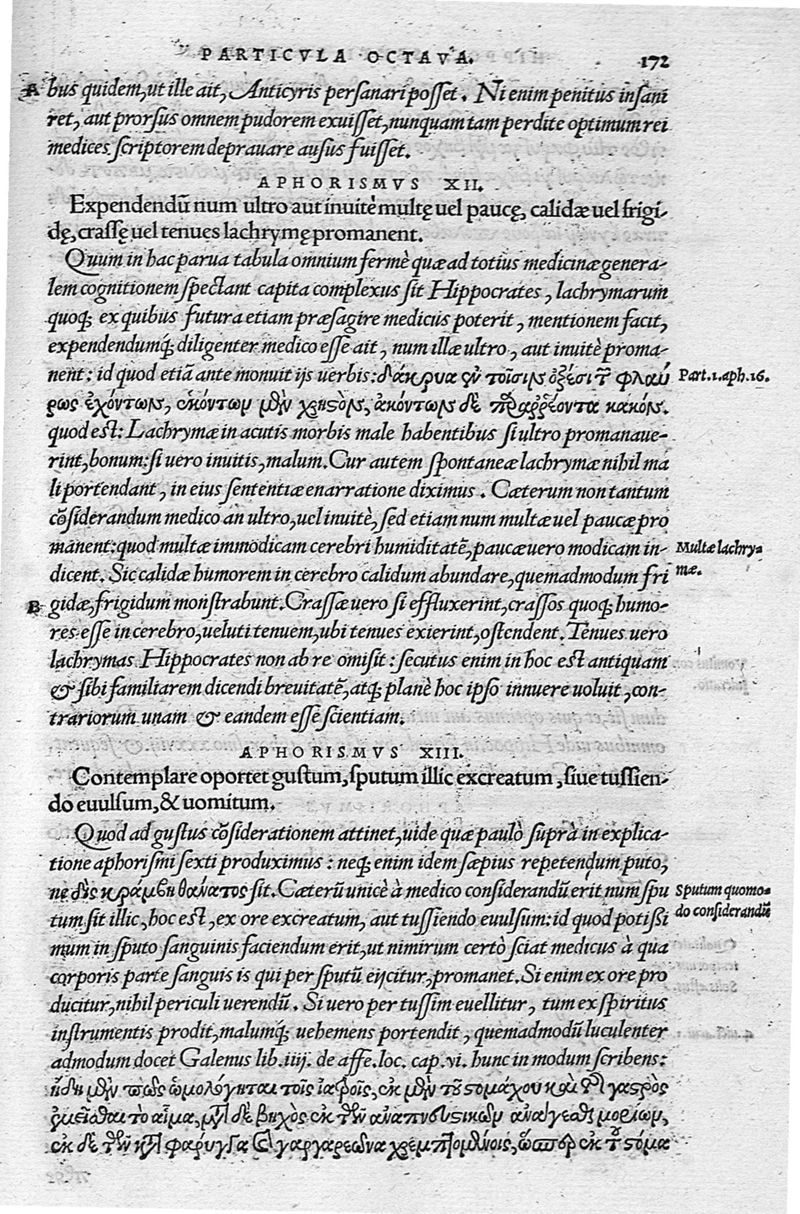 PARTICVLA OCTAVA. 172
A bus quidem, ut ille ait, Anticyris persanari posset. Ni enim penitus insani
ret, aut prorsus omnem pudorem exuisset, nunquam tam perdite optimum rei
medices scriptorem deprauare ausus fuisset.
APHORISMVS XII.
Expendendũ num ultro aut inuitè multę uel paucę, calidæ uel frigi-
dę, crassę uel tenues lachrymę promanent.
Quum in hac parua tabula omnium fermè quæ ad totius medicinæ genera-
lem cognitionem spectant capita complexus sit Hippocrates, lachrymarum
quoq; ex quibus futura etiam præsagire medicus poterit, mentionem facit,
expendendumq; diligenter medico esse ait, num illæ ultro, aut inuitè proma-
nent: id quod etiã ante monuit ijs uerbis: δάκρυα ἐν τοῖσιν ὀξέσι τῶν φλαύ Part.1.aph.16.
ρως ἐχόντων, ἑκόντων μὲν χρηστὸν, ἀκόντων δὲ παραρρέοντα κακόν.
quod est: Lachrymæ in acutis morbis male habentibus si ultro promanaue-
rint, bonum: si uero inuitis, malum. Cur autem spontaneæ lachrymæ nihil ma
li portendant, in eius sententiæ enarratione diximus. Cæterum non tantum
cõsiderandum medico an ultro, uel inuitè, sed etiam num multæ uel paucæ pro
manent: quod multæ immodicam cerebri humiditatẽ, paucæ uero modicam in- Multæ lachry-
dicent. Sic calidæ humorem in cerebro calidum abundare, quemadmodum fri mæ.
B gidæ, frigidum monstrabunt. Crassæ uero si effluxerint, crassos quoq; humo-
res esse in cerebro, ueluti tenuem, ubi tenues exierint, ostendent. Tenues uero
lachrymas Hippocrates non ab re omisit: secutus enim in hoc est antiquam
& sibi familiarem dicendi breuitatẽ, atq; planè hoc ipso innuere uoluit, con-
trariorum unam & eandem esse scientiam.
APHORISMVS XIII.
Contemplare oportet gustum, sputum illic excreatum, siue tussien-
do euulsum, & uomitum.
Quod ad gustus cõsiderationem attinet, uide quæ paulò suprà in explica-
tione aphorismi sexti produximus: neq; enim idem sæpius repetendum puto,
ne δὶς κράμβη θάνατος sit. Cæterũ unicè à medico considerandũ erit num spu Sputum quomo-
tum sit illic, hoc est, ex ore excreatum, aut tussiendo euulsum: id quod potissi do considerandũ
mum in sputo sanguinis faciendum erit, ut nimirum certò sciat medicus à qua
corporis parte sanguis is qui per sputũ eijcitur, promanet. Si enim ex ore pro
ducitur, nihil periculi uerendũ. Si uero per tussim euellitur, tum ex spiritus
instrumentis prodit, malumq; uehemens portendit, quemadmodũ luculenter
admodum docet Galenus lib. iiij. de affe. loc. cap. vi. hunc in modum scribens:
ἤδη μὲν πως ὡμολόγηται τοῖς ἰατροῖς, ἐκ μὲν τοῦ στομάχου καὶ τῆς γαστρὸς
ἐμεῖσθαι τὸ αἷμα, μετὰ δὲ βηχὸς ἐκ τῶν ἀναπνευστικῶν ἀνάγεσθαι μορίων,
ἐκ δὲ τῶν κατὰ φάρυγγα καὶ γαργαρεῶνα χρεμπτομένοις, ὥσπερ ἐκ τοῦ στόμα